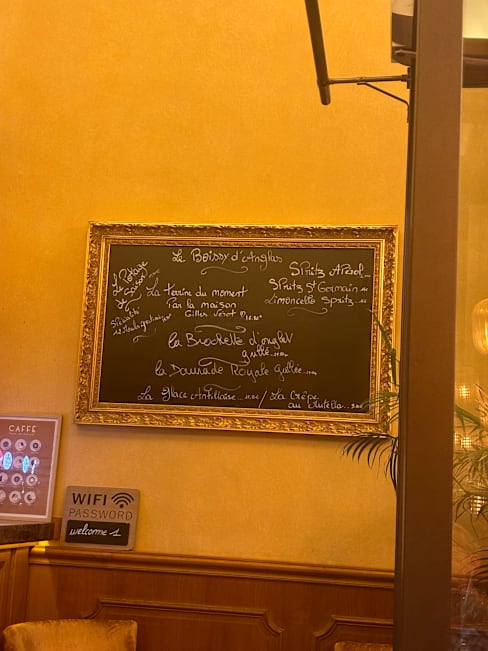 Le Boissy d'Anglas
Le Potage
de saison
Spécialité
Spritz Apérol...
Spritz St Germain
Limoncello Spritz
La Terrine du moment
Par la maison
Gilles Verot
la Brochette d'onglet
grillé
la Daurade Royale grillée
La Glace Antillaise / La Crêpe
au Nutella
CAFFÈ
WIFI
PASSWORD
welcome 1